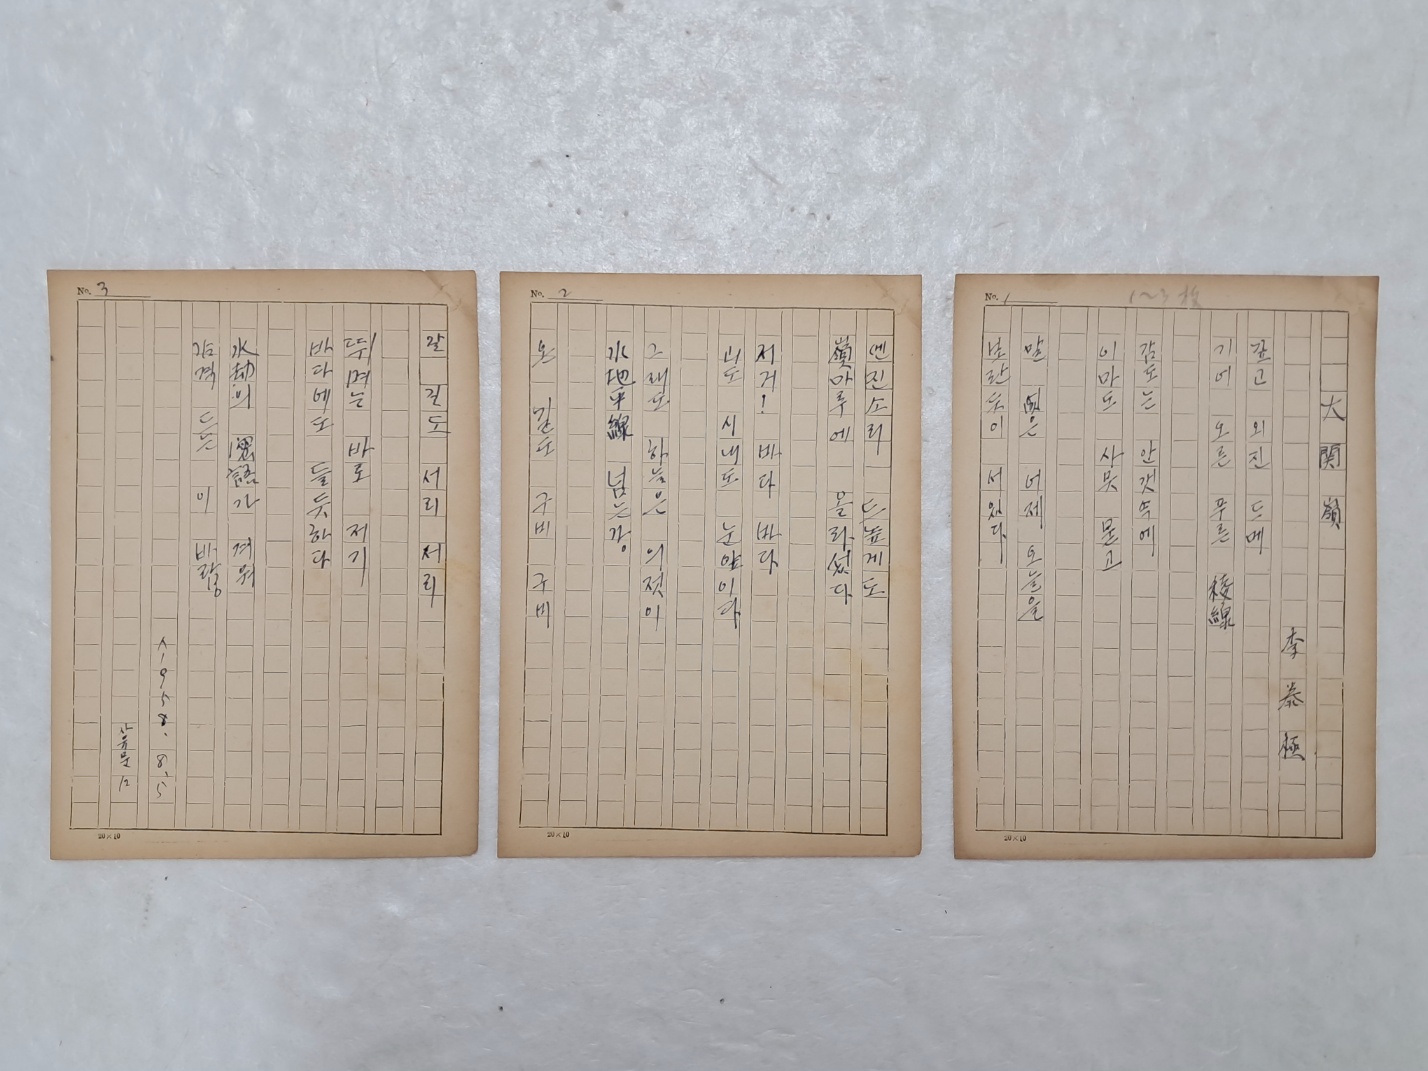 No. 1
大関嶺
李泰極
깊고 외진 드메
기어 오른 푸른 稜線
감도는 안갯속에
이마도 사뭇 묻고
말 없은 어제 오늘을
보란듯이 서있다.
20×10
No. 2
엔진소리 드높게도
嶺마루에 올라섰다
저거! 바다 바다
뫼도 시내도 눈앞이다
그래도 하늘은 의젓이
水地平線 넘는강
온 길도 구비 구비
20×10
No. 3
갈 길도 서리 서리
뛰며는 바로 저기
바다에도 들듯하다
永劫의 密語가 겨워
감격 드는 이 바람
1958. 8. 5
20×10